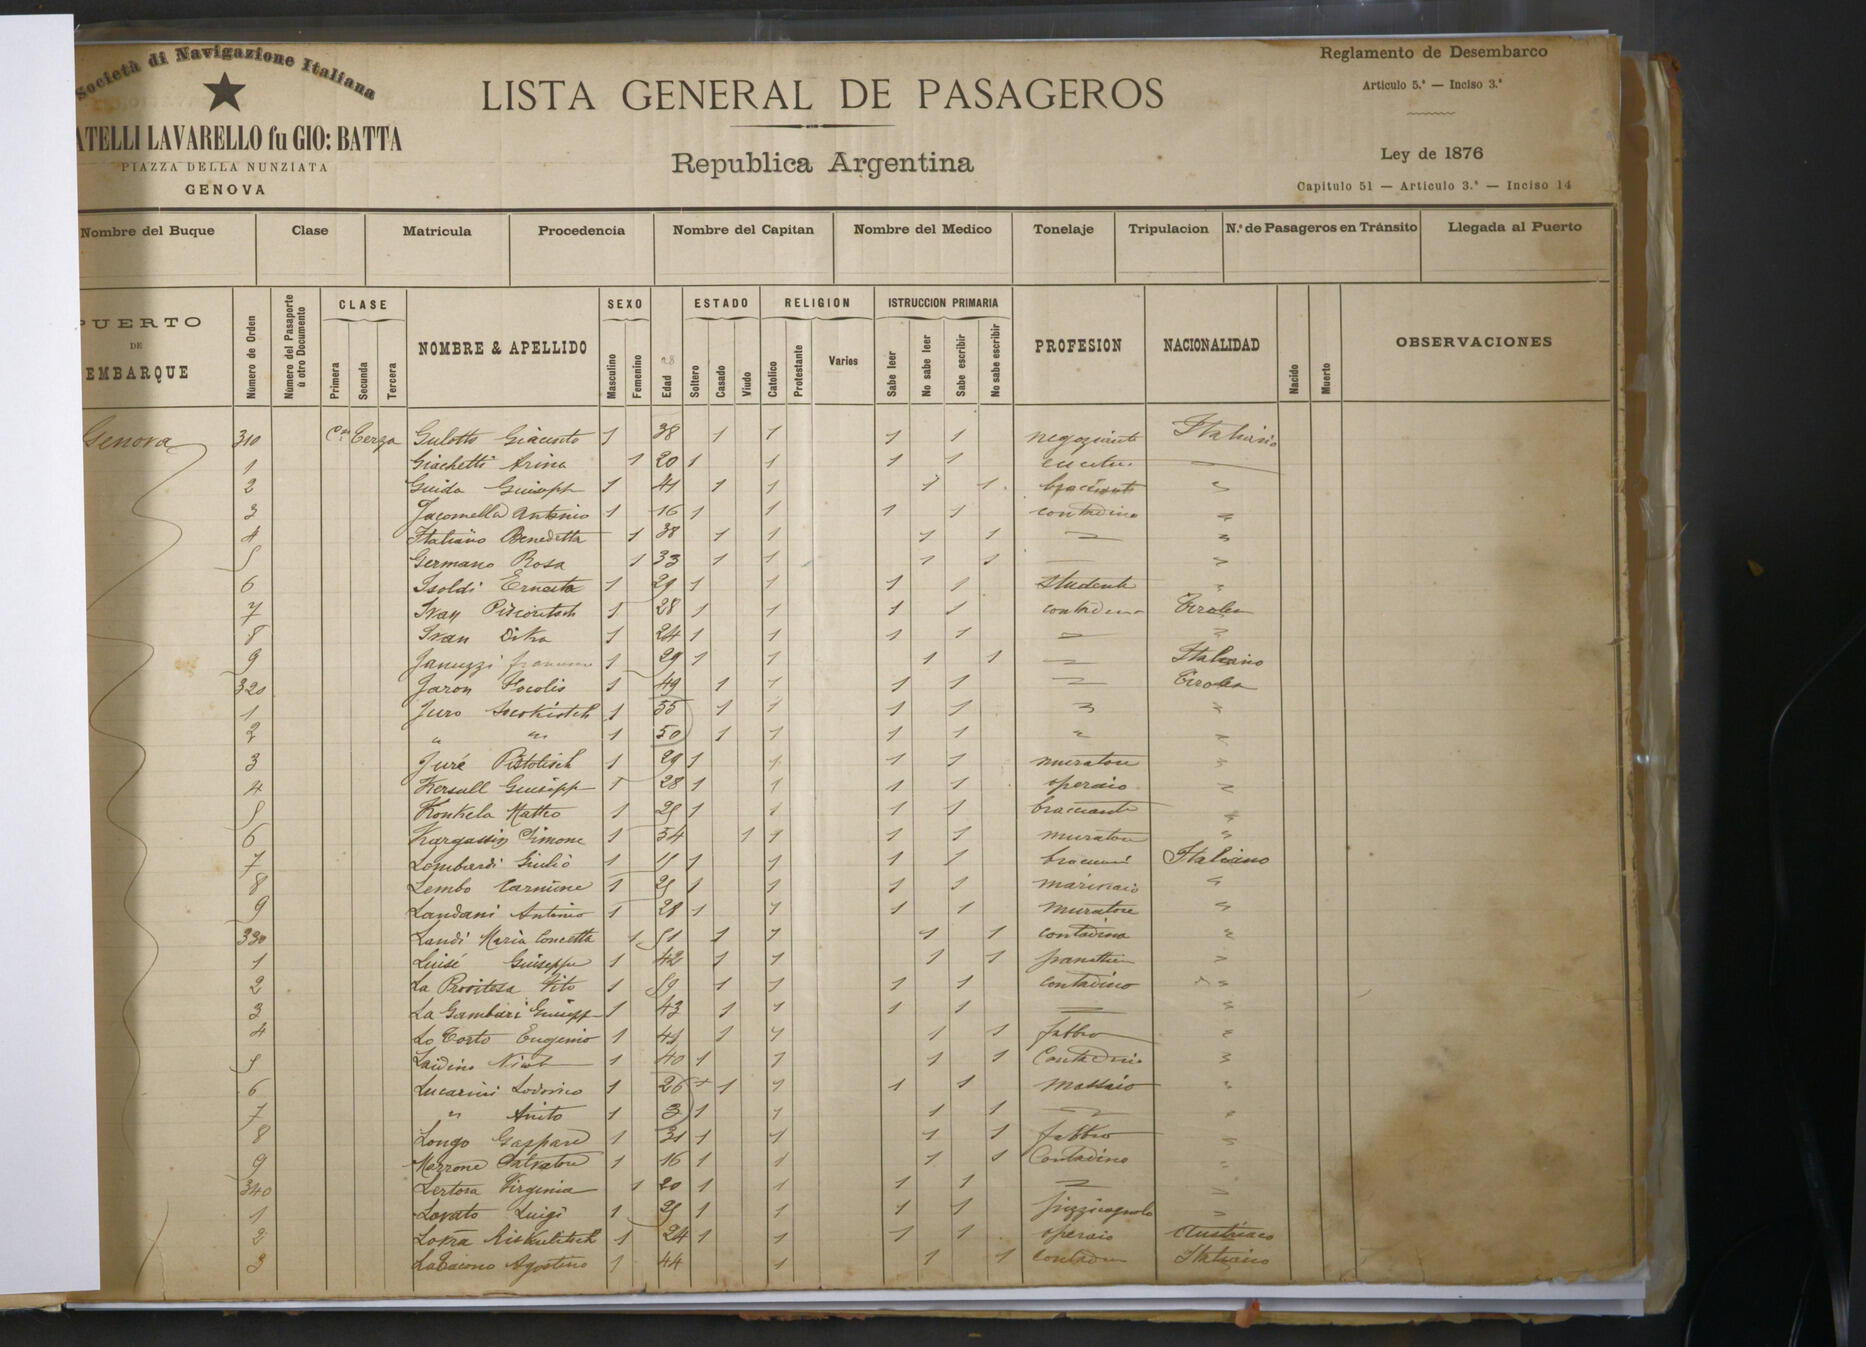 Società di Navigazione Italiana
ATELLI LAVARELLO fu GIO: BATTA
PIAZZA DELLA NUNZIATA
GENOVA
LISTA GENERAL DE PASAGEROS
Republica Argentina
Reglamento de Desembarco
Articulo 5.º — Inciso 3.º
Ley de 1876
Capitulo 51 — Articulo 3.º — Inciso 14
Nombre del Buque Clase Matricula Procedencia Nombre del Capitan Nombre del Medico Tonelaje Tripulacion N.º de Pasageros en Tránsito Llegada al Puerto
PUERTO DE EMBARQUE Número de Orden Número del Pasaporte ù otro Documento CLASE Primera Secunda Tercera NOMBRE & APELLIDO SEXO Masculino Femenino Edad 28 ESTADO Soltero Casado Viudo RELIGION Catolico Protestante Varies ISTRUCCION PRIMARIA Sabe leer No sabe leer Sabe escribir No sabe escribir PROFESION NACIONALIDAD Nacido Muerto OBSERVACIONES
Genova 310 Terza Gulotto Giacinto 1 38 1 1 1 1 negoziante Italiano
1 Giachetti 1 20 1 1 1 1
2 Guida Giuseppe 1 41 1 1 1 1 bracciante "
3 Jacomella Antonio 1 16 1 1 1 1 contadino "
4 Italiano Benedetta 1 38 1 1 1 1 " "
5 Germano Rosa 1 33 1 1 1 1 — "
6 Isoldi Ernesto 1 29 1 1 1 1 studente "
7 Ivan 1 28 1 1 1 1 contadino Tirolese
8 Ivan 1 24 1 1 1 1 " "
9 Januzzi 1 29 1 1 1 1 — Italiano
320 Jaron 1 49 1 1 1 1 " Tirolese
1 Juro 1 55 1 1 1 1 " "
2 " " 1 50 1 1 1 1 " "
3 Juré Pistolisch 1 29 1 1 1 1 muratore "
4 Kersull Giuseppe 1 28 1 1 1 1 operaio "
5 Konkela Matteo 1 25 1 1 1 1 bracciante "
6 Simone 1 54 1 1 1 1 muratore "
7 Lombardi Giulio 1 1 1 1 1 Italiano
8 Lembo Carmine 1 25 1 1 1 1 marinaio "
9 Landani Antonio 1 28 1 1 1 1 muratore "
330 Landi Maria Concetta 1 51 1 1 1 1 contadina "
1 Luisé Giuseppe 1 42 1 1 1 1 "
2 La Provitesa Vito 1 59 1 1 1 1 contadino "
3 La Gambari Giuseppe 1 43 1 1 1 1 — "
4 Lo Torto Eugenio 1 41 1 1 1 1 fabbro "
5 Laidino 1 40 1 1 1 1 Contadino "
6 Lucarini Lodovico 1 26 1 1 1 1 Massaio "
7 " Anito 1 3 1 1 1 1 " "
8 Longo Gaspare 1 31 1 1 1 1 fabbro "
9 Mazzone Salvatore 1 16 1 1 1 1 Contadino "
340 Lertora Virginia 1 20 1 1 1 1 " "
1 Lovato Luigi 1 25 1 1 1 1 pizzicagnolo "
2 Lokra 1 24 1 1 1 1 operaio Austriaco
3 Agostino 1 44 1 1 1 Italiano